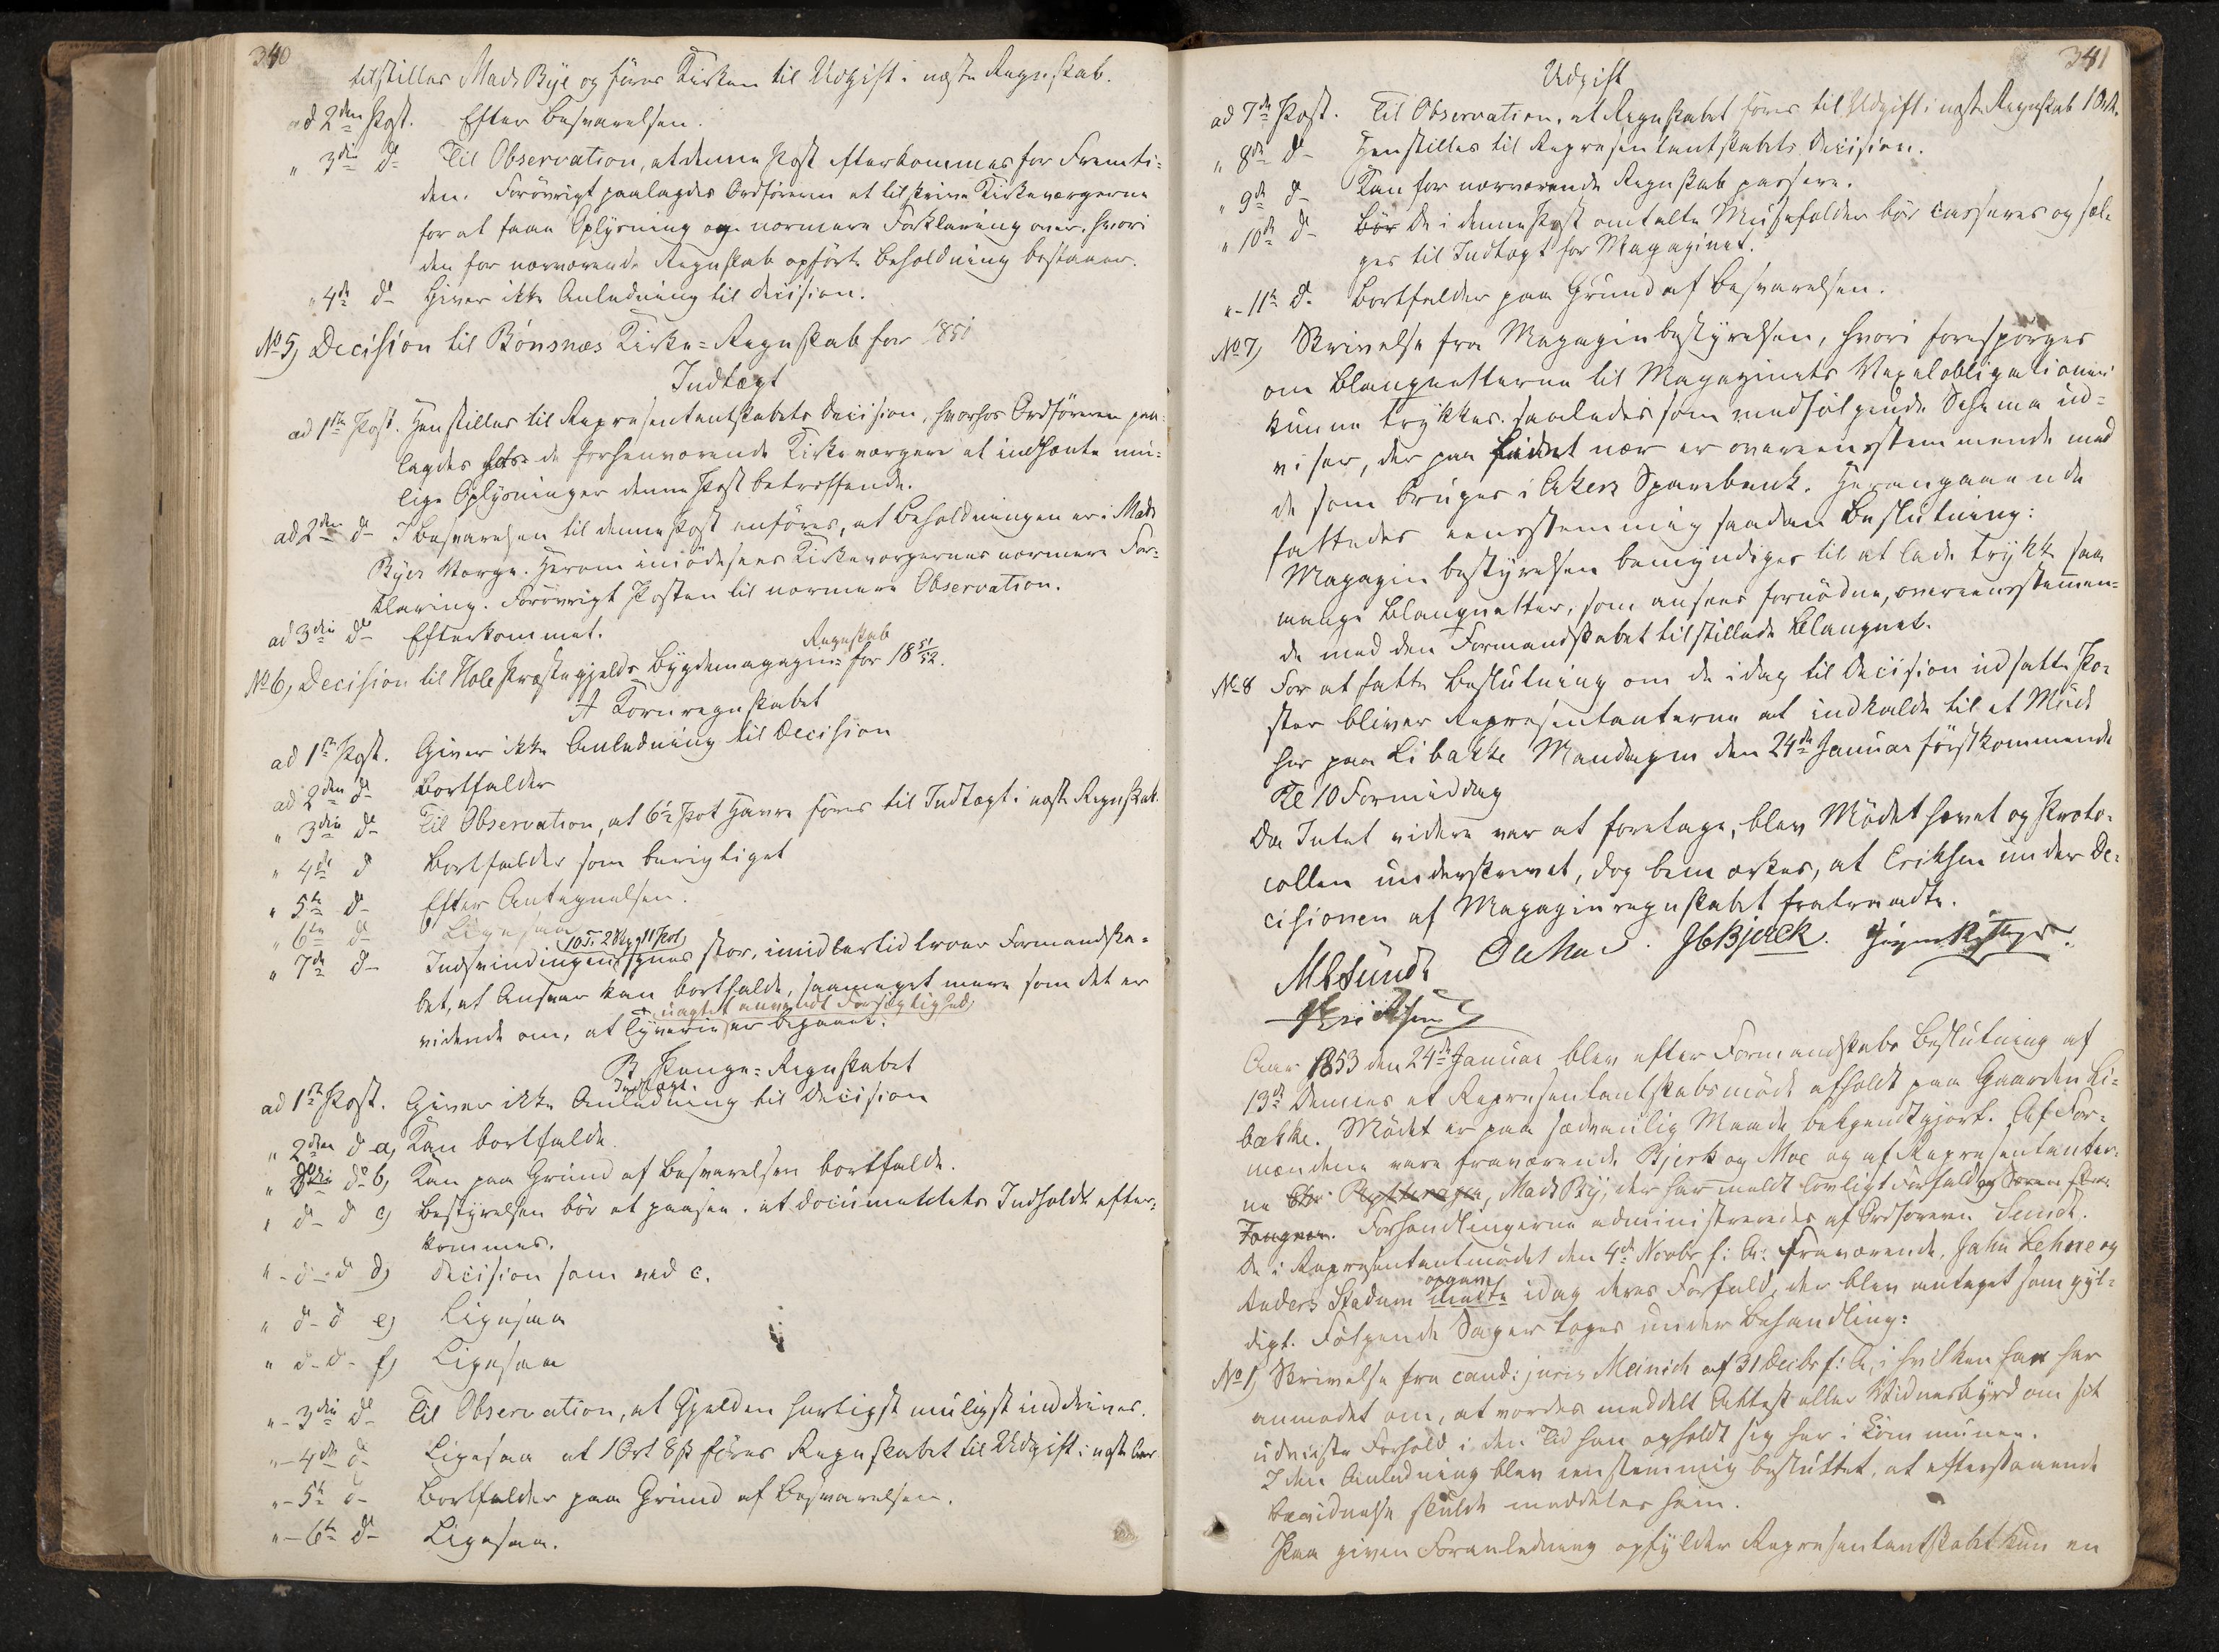 340
tilstilles Mads Bye og føres Kirken til Udgift i næste Regnskab.
ad 2den Post. Efter Besvarelsen.
" 3die do Til Observation, at denne Post efterkommes for Fremti-
den. Forøvrigt paalagdes Ordføreren at tilskrive Kirkeværgerne
for at faae Oplysning og nærmere Forklaring over, hvori
den for nærværende Regnskab opførte Beholdning bestaaer.
" 4de do Giver ikke Anledning til Decision.
No 5, Decision til Bönsnæs Kirke-Regnskab for 1851
Indtægt
ad 1ste Post. Henstilles til Repræsentantskabets Decision, hvorhos Ordføreren paa-
lagdes hos de forhenværende Kirkeværgere at indhente mu-
lige Oplysninger denne Post betræffende.
ad 2den do I Besvarelsen til denne Post anføres, at Beholdningen er i Mads
Byes Værge. Herom imødesees Kirkeværgernes nærmere For-
klaring. Forøvrigt Posten til nærmere Observation.
ad 3die do Efterkommet.
No 6, Decision til Hole Præstegjelds Bygdemagazin- Regnskab for 18 51/52.
A Kornregnskabet
ad 1ste Post. Giver ikke Anledning til Decision
ad 2den do Bortfalder
" 3die do Til Observation, at 6 1/2 Pot Havre føres til Indtægt i næste Regnskab.
" 4de d Bortfalder som berigtiget
" 5te do Efter Antegnelsen.
" 6te do Ligesaa
" 7de do Indsvindingen 10 T. 2 Skp. 11 Pot, synes stor, imidlertid troer Formandska-
bet, at Ansvar kan bortfalde, saameget mere som det er
vidende om, at Tyverie uagtet anvendt Forsigtighed, er begaaet.
B Penge-Regnskabet
Indtægt.
ad 1ste Post. Giver ikke Anledning til Decision
" 2den do a, Kan bortfalde.
" do do b, Kan paa Grund af Besvarelsen bortfalde.
" do d c) Bestyrelsen bör at paasee, at Documentets Indholdt efter-
kommes.
" do d d) Decision som ved c.
" do d e) Ligesaa
" do do f) Ligesaa
" 3die do Til Observation, at Gjelden hurtigst muligst inddrives.
" 4de do Ligesaa at 1 Ort 8 ß føres Regnskabet til Udgift i næste Aar
" 5te do Bortfalder paa Grund af Besvarelsen.
" 6te do Ligesaa.
341
Udgift
ad 7de Post. Til Observation, at Regnskabet føres til Udgift i næste Regnskab 1 Ort.
" 8de do Henstilles til Repræsentantskabets Decision.
" 9de do Kan for nærværende Regnskab passere.
" 10de do Bör De i denne Post omtalte Musefælder bör casseres og sæl-
ges til Indtægt for Magazinet.
" 11te do Bortfalder paa Grund af Besvarelsen.
No 7, Skrivelse fra Magazinbestyrelsen, hvori forespørges
om Blanquetterne til Magazinets Vexelobligationer
kunne trykkes saaledes som medfølgende Schema ud-
viser, der paa Lidet nær er overeensstemmende med
de som bruges i Akers Sparebank. Herangaaende
fattedes eensstemmig saadan Beslutning:
Magazinbestyrelsen bemyndiges til at lade trykke saa
mange Blanquetter, som ansees fornødne, overeensstemmen-
de med den Formandskabet tilstillede Blanquet.
No 8 For at fatte Beslutning om de idag til Decision udsatte Po-
ster bliver Repræsentanterne at indkalde til et Møde
her paa Libakke Mandagen den 24de Januar førstkommende
Kl 10 Formiddag
Da Intet videre var at foretage, blev Mødet hævet og Proto-
collen underskrevet, dog bemærkes, at Eriksen under De-
cisionen af Magazinregnskabet fratraadte.
M Sundt Ole Moe. J C Bjerck.
Eriksen
Aar 1853 den 24de Januar blev efter Formandskabs Beslutning af
13de Dennes et Repræsentantskabsmøde afholdt paa Gaarden Li-
bakke. Mødet er paa sædvanlig Maade bekjendtgjort. Af For-
mændene vare fraværende Bjerk og Moe og af Repræsentanter-
ne Mads By, der har meldt lovligt Forfald og Søren
Fougner. Forhandlingerne administreredes af Ordføreren Sundt.
De i Repræsentantmødet den 4de Novbr f: A: fraværende, John Lehne og
Anders Stadum opgave meldte idag deres Forfald, der blev antaget som gyl-
digt. Følgende Sager toges under Behandling:
No 1, Skrivelse fra cand: juris Meinich af 31 Decbr f: A, i hvilken han har
anmodet om, at vorde meddelt Attest eller Vidnesbyrd om sit
udviste Forhold i den Tid han opholdt sig her i Kommunen.
I den Anledning blev eenstemmig besluttet, at efterstaaende
Bevidnelse skulde meddeles ham.
Paa given Foranledning opfylder Repræsentantskabet kun en